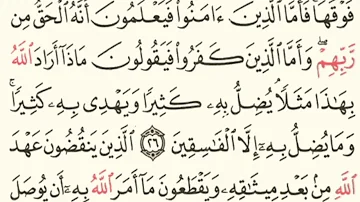 فَوْقَهَا فَأَمَّا ٱلَّذِينَ ءَامَنُوا۟ فَيَعْلَمُونَ أَنَّهُ ٱلْحَقُّ مِن
رَّبِّهِمْ ۖ وَأَمَّا ٱلَّذِينَ كَفَرُوا۟ فَيَقُولُونَ مَاذَآ أَرَادَ ٱللَّهُ
بِهَـٰذَا مَثَلًا ۘ يُضِلُّ بِهِۦ كَثِيرًا وَيَهْدِى بِهِۦ كَثِيرًا ۚ
وَمَا يُضِلُّ بِهِۦٓ إِلَّا ٱلْفَـٰسِقِينَ ٢٦ ٱلَّذِينَ يَنقُضُونَ عَهْدَ
ٱللَّهِ مِنۢ بَعْدِ مِيثَـٰقِهِۦ وَيَقْطَعُونَ مَآ أَمَرَ ٱللَّهُ بِهِۦٓ أَن يُوصَلَ